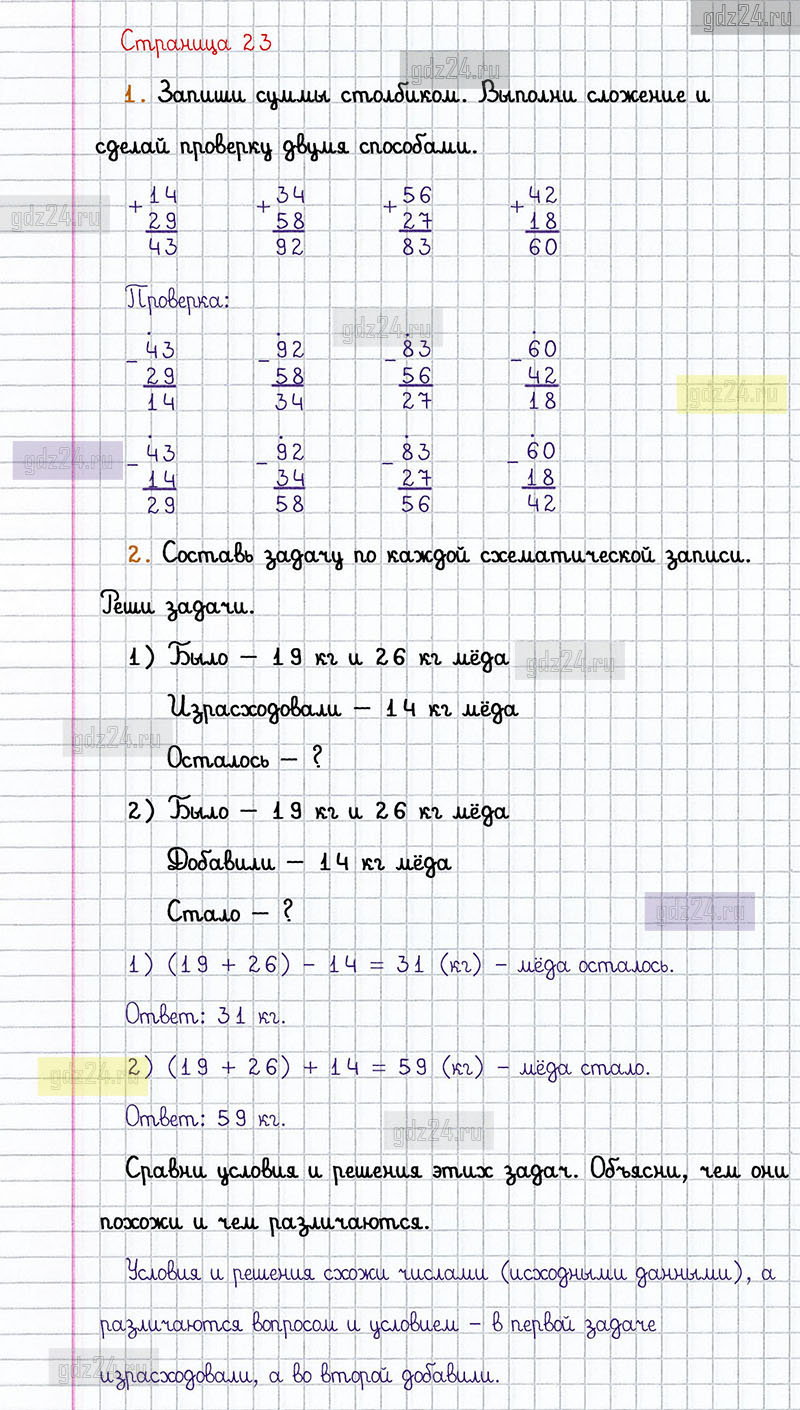 gdz24.ru
Страница 23
gdz24.ru
1. Запиши суммы столбиком. Выполни сложение и
сделай проверку двумя способами.
+ 14 + 34 + 56 + 42
29 58 27 18
gdz24.ru
43 92 83 60
Проверка:
gdz24.ru
- 43 - 92 - 83 - 60
29 58 56 42
gdz24.ru
14 34 27 18
- 43 - 92 - 83 - 60
gdz24.ru
14 34 27 18
29 58 56 42
2. Составь задачу по каждой схематической записи.
Реши задачи.
1) Было – 19 кг и 26 кг мёда
gdz24.ru
Израсходовали – 14 кг мёда
gdz24.ru
Осталось – ?
2) Было – 19 кг и 26 кг мёда
Добавили – 14 кг мёда
Стало – ?
gdz24.ru
1) (19 + 26) - 14 = 31 (кг) – мёда осталось.
Ответ: 31 кг.
2) (19 + 26) + 14 = 59 (кг) – мёда стало.
gdz24.ru
Ответ: 59 кг.
gdz24.ru
Сравни условия и решения этих задач. Объясни, чем они
похожи и чем различаются.
Условия и решения схожи числами (исходными данными), а
различаются вопросом и условием – в первой задаче
gdz24.ru
израсходовали, а во второй добавили.